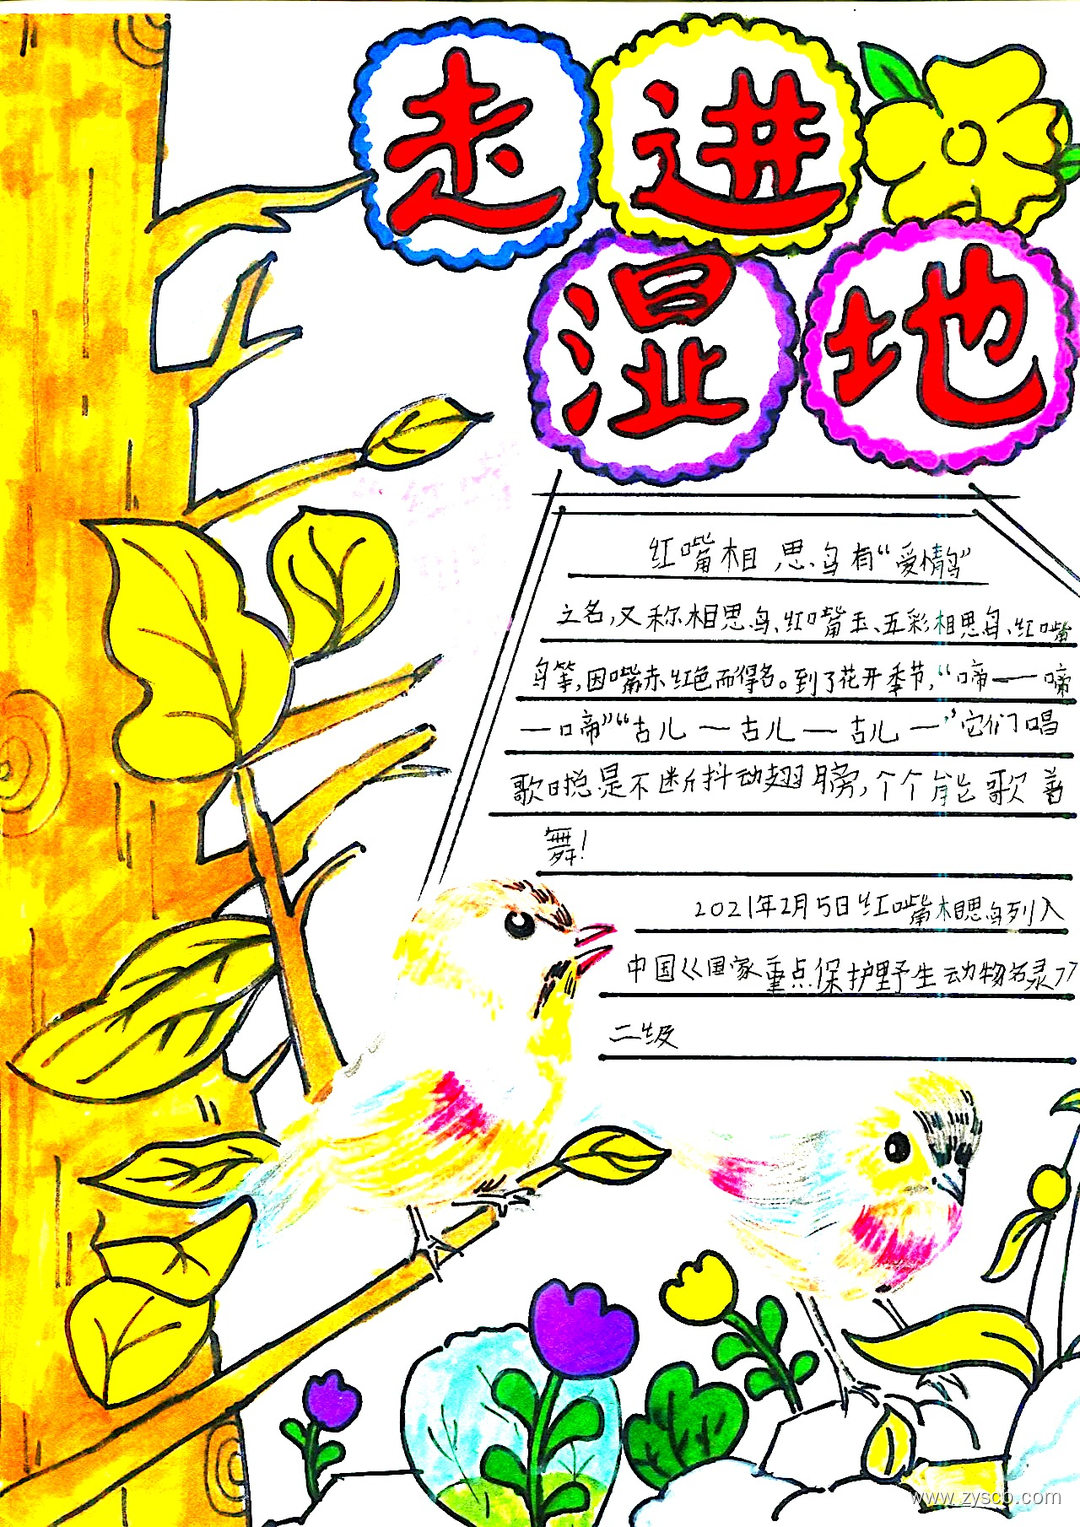 走进
湿地
红嘴相思鸟有“爱情鸟”
之名,又称相思鸟、红嘴玉、五彩相思鸟、红嘴
鸟等,因嘴赤红色而得名。到了花开季节,“啼——啼
—啼”“古儿—古儿—古儿—”它们唱
歌时总是不断抖动翅膀,个个能歌善
舞!
2021年2月5日红嘴相思鸟列入
中国《国家重点保护野生动物名录》
二级
www.zyscb.com